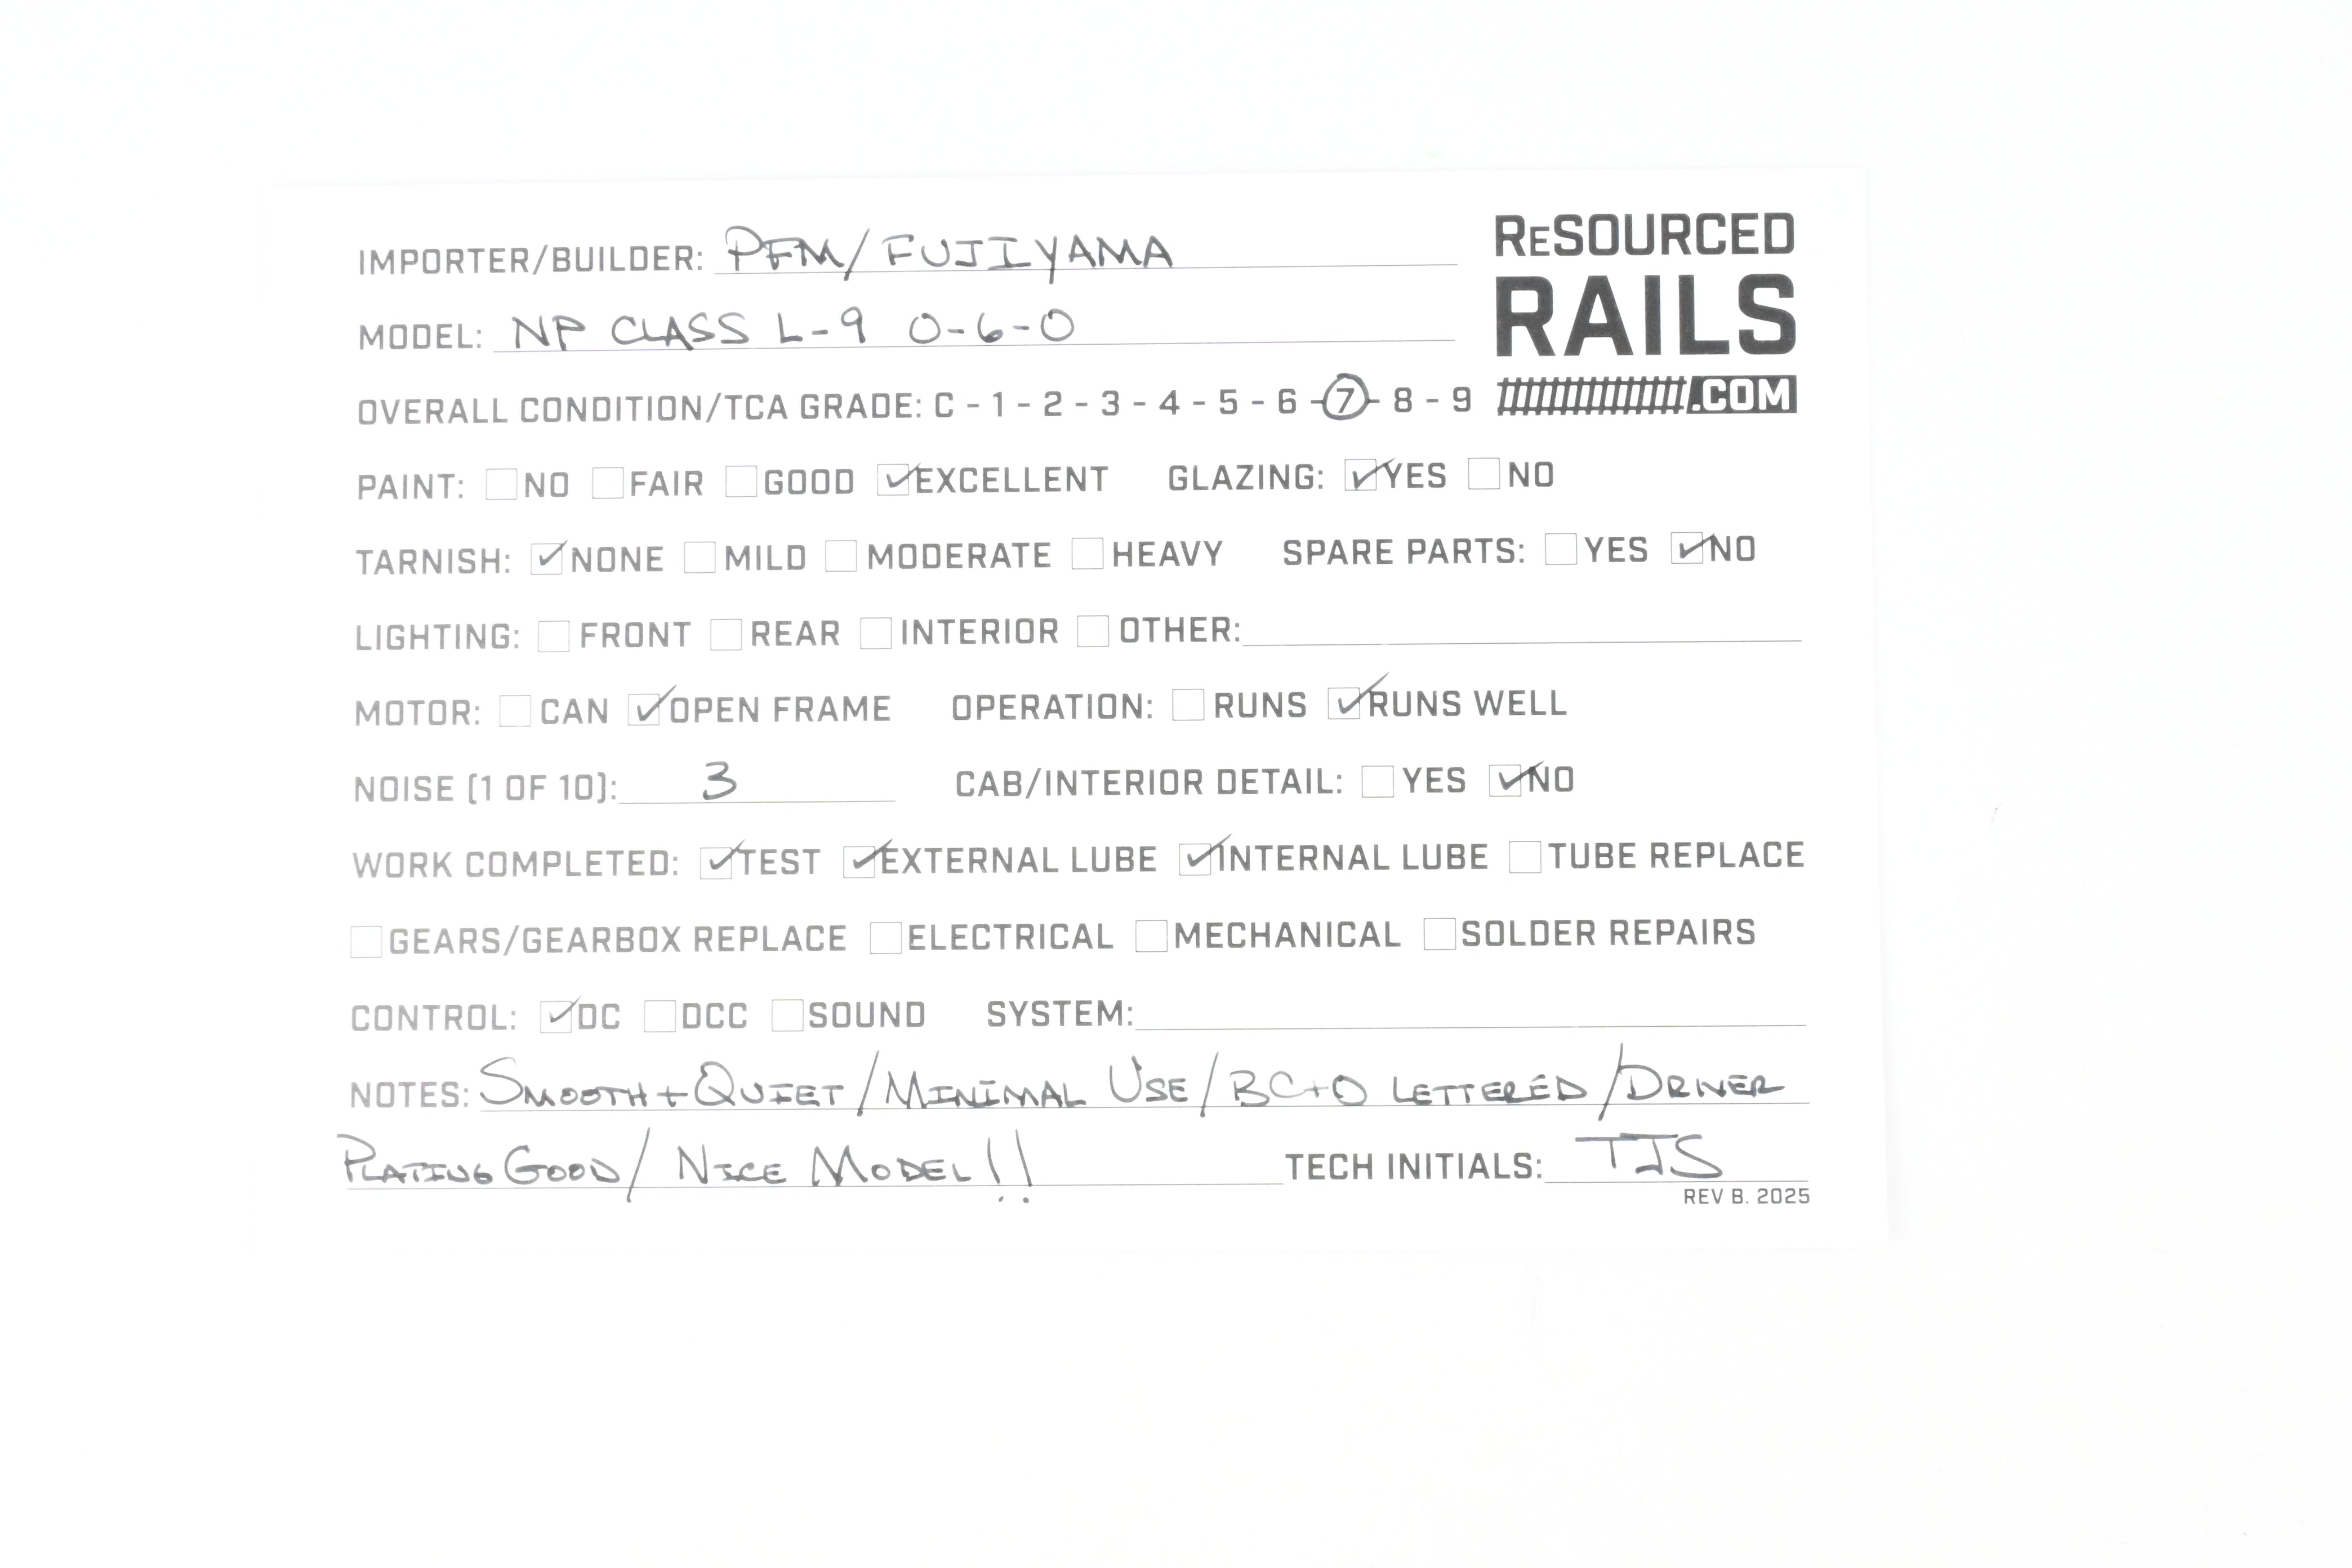 RESOURCED
RAILS
.COM
IMPORTER/BUILDER: PFM/FUJIYAMA
MODEL: NP CLASS L-9 0-6-0
OVERALL CONDITION/TCA GRADE: C - 1 - 2 - 3 - 4 - 5 - 6 - 7 - 8 - 9
PAINT: ☐ NO ☐ FAIR ☐ GOOD ☑ EXCELLENT GLAZING: ☑ YES ☐ NO
TARNISH: ☑ NONE ☐ MILD ☐ MODERATE ☐ HEAVY SPARE PARTS: ☐ YES ☑ NO
LIGHTING: ☐ FRONT ☐ REAR ☐ INTERIOR ☐ OTHER:
MOTOR: ☐ CAN ☑ OPEN FRAME OPERATION: ☐ RUNS ☑ RUNS WELL
NOISE (1 OF 10): 3 CAB/INTERIOR DETAIL: ☐ YES ☑ NO
WORK COMPLETED: ☑ TEST ☑ EXTERNAL LUBE ☑ INTERNAL LUBE ☐ TUBE REPLACE
☐ GEARS/GEARBOX REPLACE ☐ ELECTRICAL ☐ MECHANICAL ☐ SOLDER REPAIRS
CONTROL: ☑ DC ☐ DCC ☐ SOUND SYSTEM:
NOTES: SMOOTH+QUIET/MINIMAL USE/BC+O LETTERED/DRIVER
PLATING GOOD/ NICE MODEL!! TECH INITIALS: TJS
REV B. 2025